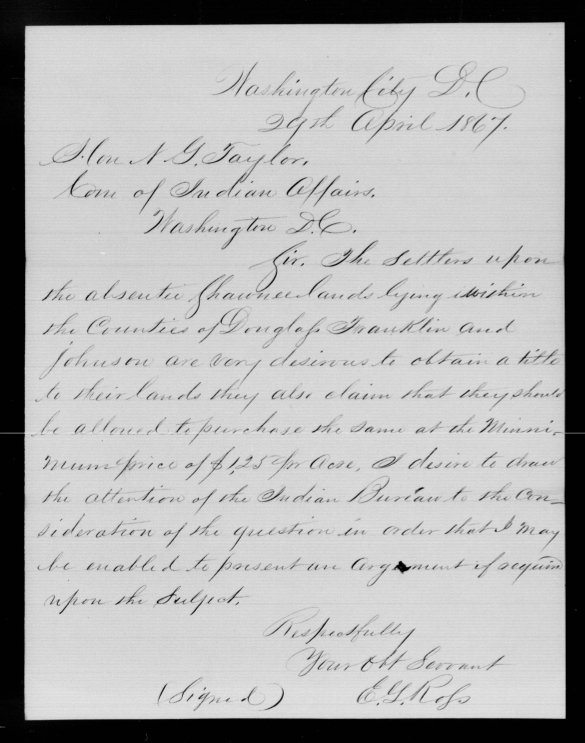 Washington City D.C
29th April 1867.
Hon N. G. Taylor,
Com of Indian Affairs.
Washington D.C.
Sir. The Settlers upon
the absentee Shawnee lands lying within
the Counties of Douglass Franklin and
Johnson are very desirous to obtain a title
to their lands they also claim that they should
be allowed to purchase the same at the Minni-
mum price of $1,25 pr Acre, I desire to draw
the attention of the Indian Bureau to the Con-
sideration of the question in order that I may
be enabled to present an argument if required
upon the Subject.
Respectfully
Your Obt Servant
(Signed) E. G. Ross